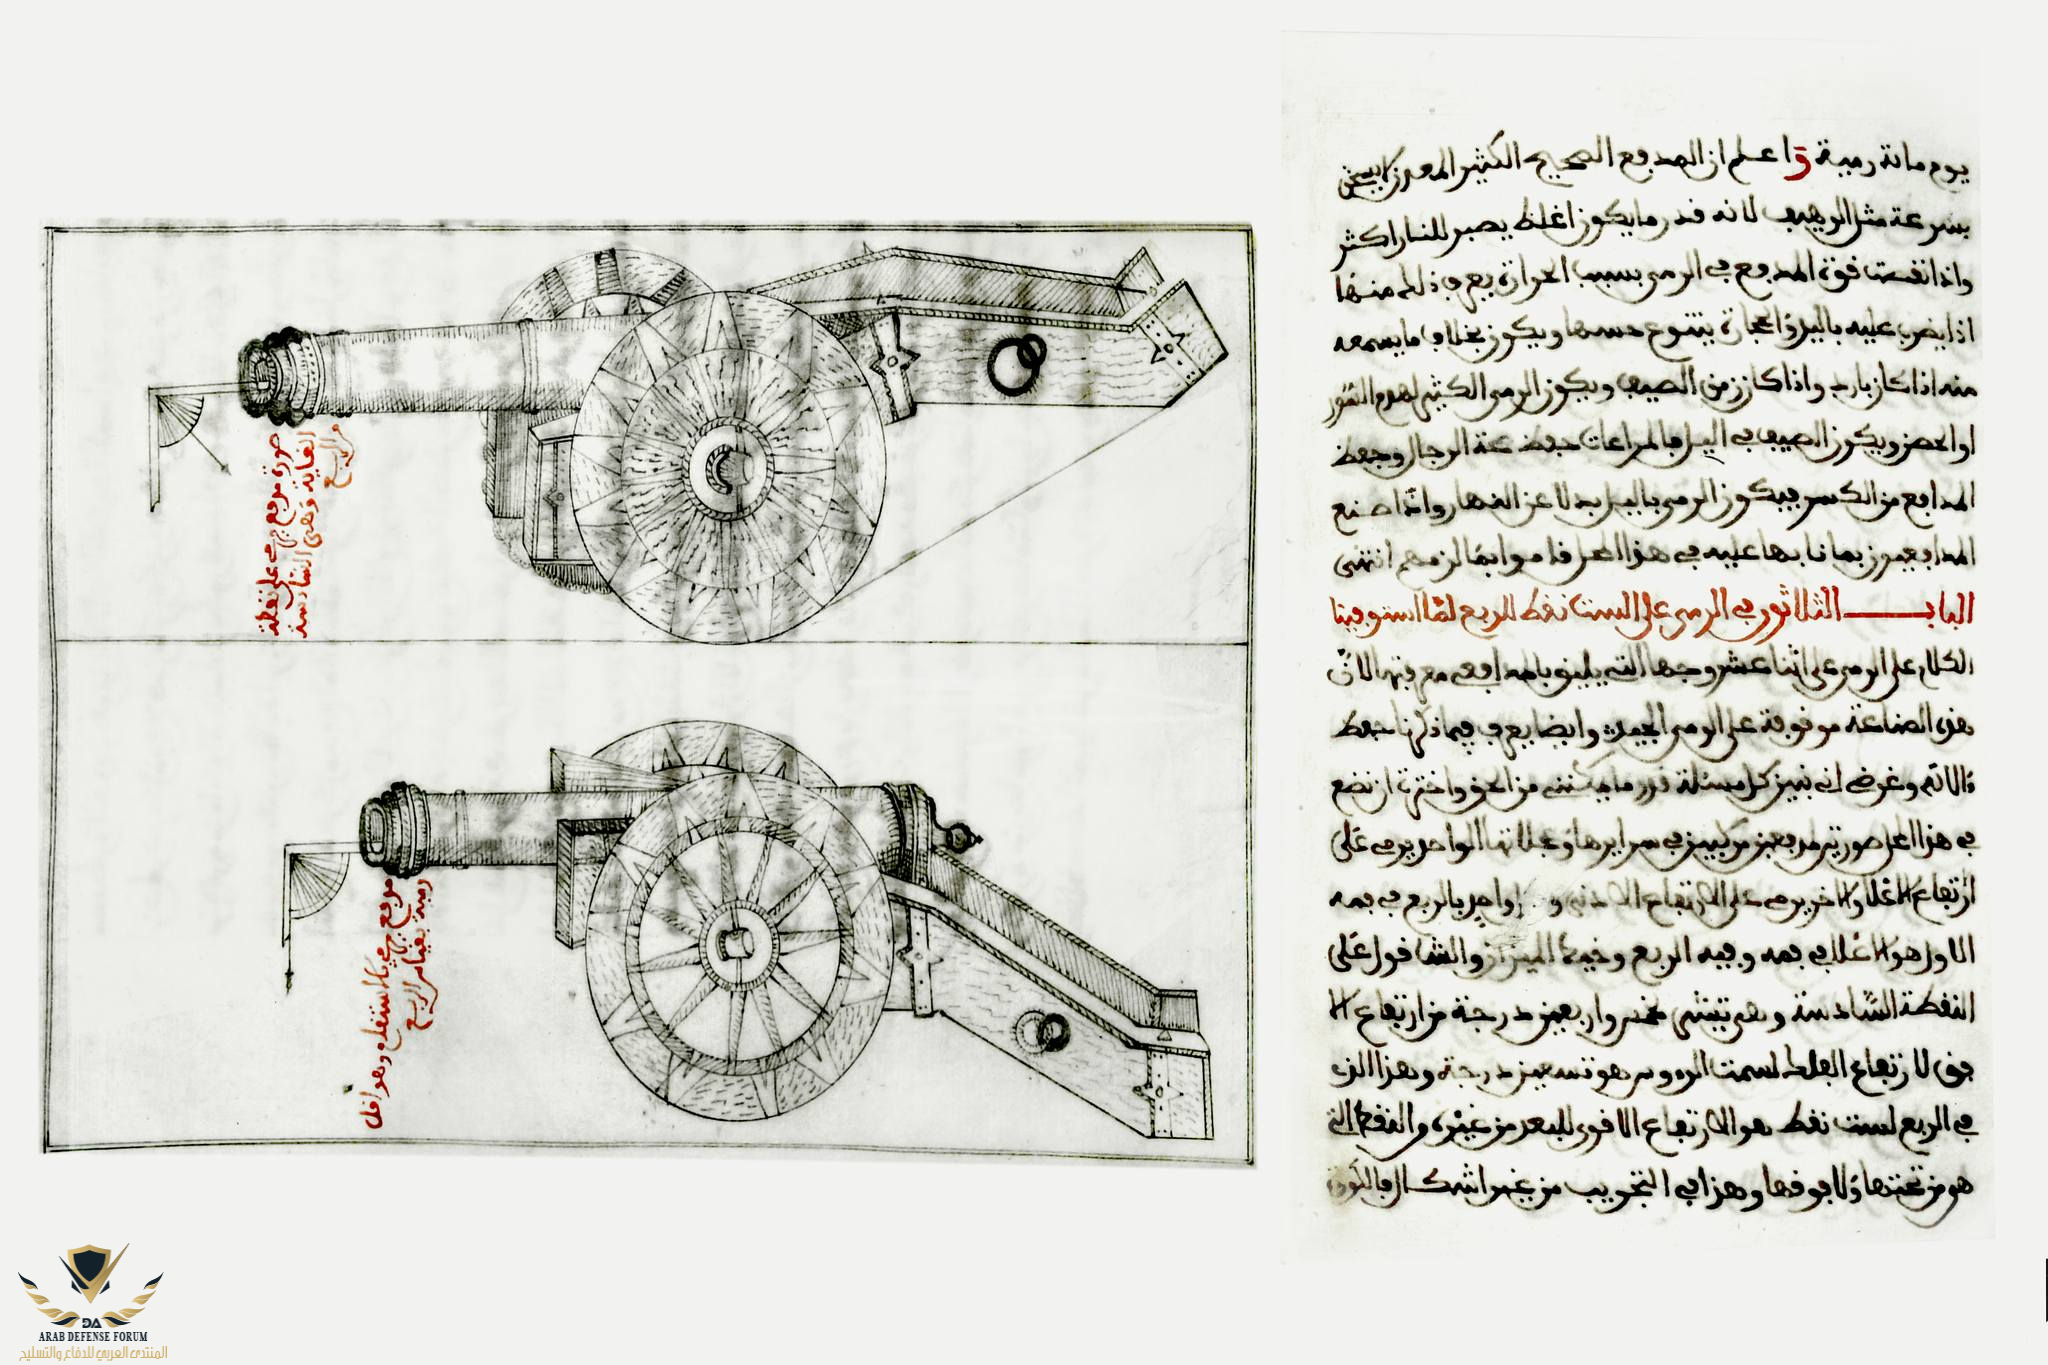 يوم مائة رمية واعلم ان المدفع الصحيح الكثير المعدن لا يسخن
بسرعة مثل الرهيف لانه قدر ما يكون اغلظ يصبر للنار اكثر
واذا نقصت قوة المدفع في الرمي بسبب الحرارة يعرف ذلك منها
اذا يضرب عليه باليد او الحجارة يتنوع حسها ويكون بخلاف ما يسمعه
منه اذا كان بارد واذا كان زمن الصيف ويكون الرمي الكثير لهدم السور
او الحصن ويكون الصيف في الليل فالمراعات حفظ صحة الرجال وحفظ
المدافع من الكسر فيكون الرمي بالليل بدلا عن النهار واذا صنع
المدافعيون بما نابها عليه في هذا المحل قاموا بما لزمهم انتهى
الباب الثلاثون في الرمي على الست نقط للربع لما استوفينا
الكلام على الرمي على اثنا عشر وجها التي يليق بالمدافعي معرفتها لان
هذه الصناعة موقوفة على الرمي الجيد وايضا يعرف فيما ذكرنا حفظ
الالة وغرضي اني نبين كل مسئلة قدر ما يمكنني من الحق واخترت ان نضع
في هذا المحل صورتي مدفعين مركبين في سرايرها وعجلاتها الواحد يرمي على
ارتفاع الاعلا والاخر يرمي على الارتفاع الادنى بالربع في فمه
الاول هو الاعلا في فمه وفيه الربع وخيط الميزان والشاقول على
النقطة السادسة وهي تنتهي خمس واربعين درجة من ارتفاع الا
فق لارتفاع الغلط لسمت الروس هو تسعين درجة وهذا الذي
في الربع لست نقط هو الارتفاع الاقوى للبعد من غيره والنقط التي
هو من تحتها ولا فوقها وهذا في التجريب من غير اشكال
صورة مدفع يرمي على نقطة
الغاية وهي السادسة
من الربع
مدفع يرمي بالاستقلال وهو اقل
رمية بقياس الربع
ARAB DEFENSE FORUM
المنتدى العربي للدفاع والتسليح